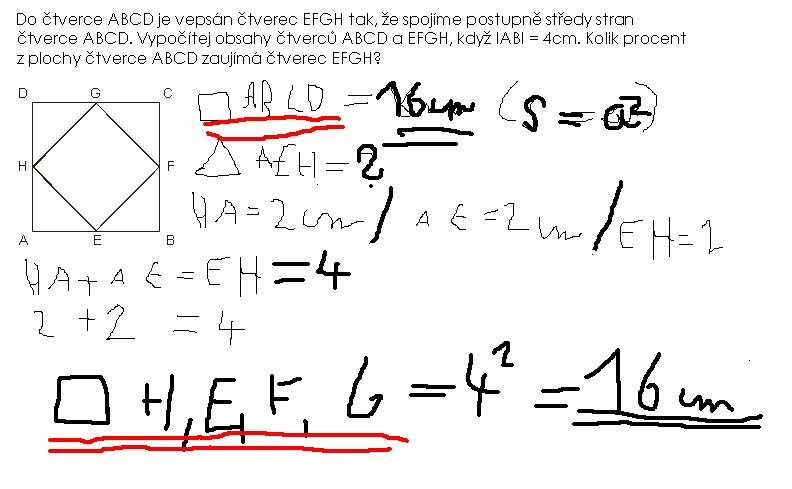 Do čtverce ABCD je vepsán čtverec EFGH tak, že spojíme postupně středy stran
čtverce ABCD. Vypočítej obsahy čtverců ABCD a EFGH, když IABI = 4cm. Kolik procent
z plochy čtverce ABCD zaujímá čtverec EFGH?
D G C
□ ABCD = 16cm (S = a²)
H F
△ AEH = ?
HA = 2cm / AE = 2cm / EH = ?
A E B
HA + AE = EH = 4
2 + 2 = 4
□ H, E, F, G = 4² = 16cm